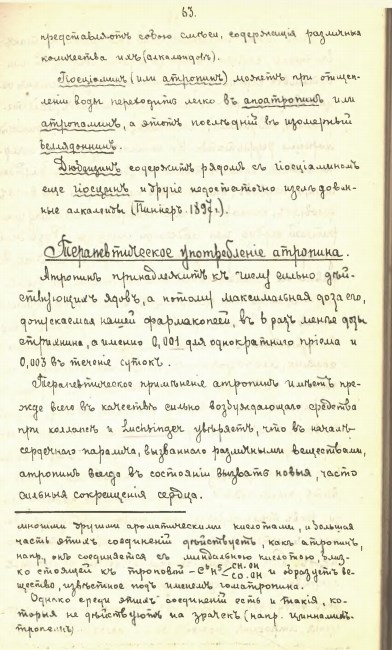 63.
представляютъ собою смѣси, содержащія различныя
количества ихъ (алкалоидовъ).
Гіосціаминъ (или атропинъ) можетъ при отщеп-
леніи воды переходить легко въ апоатропинъ или
атропаминъ, а этотъ послѣдній въ изомерный
белладоннинъ.
Дюбуазинъ содержитъ рядомъ съ гіосціаминомъ
еще гіосцинъ и другіе недостаточно изслѣдован-
ные алкалоиды (Пиннеръ. 1897 г.)
Терапевтическое употребленіе атропина.
Атропинъ принадлежитъ къ числу сильно дѣй-
ствующихъ ядовъ, а потому максимальная доза его,
допускаемая нашей фармакопеей, въ 6 разъ менѣе дозы
стрихнина, а именно 0,001 для однократнаго пріема и
0,003 въ теченіе сутокъ.
Терапевтическое примѣненіе атропинъ имѣетъ пре-
жде всего въ качествѣ сильно возбуждающаго средства
при коллапсѣ и Luchsinger увѣряетъ, что въ началѣ
сердечнаго паралича, вызваннаго различными веществами,
атропинъ всегда въ состояніи вызвать новыя, часто
сильныя сокращенія сердца.
многими другими ароматическими кислотами, и большая
часть этихъ соединеній дѣйствуетъ, какъ атропинъ,
напр., онъ соединяется съ миндальною кислотою, близ-
ко стоящей къ троповой – C⁶H⁵ < CH.OH CO.OH и образуетъ ве-
щество, извѣстное подъ именемъ гоматропина.
Однако среди этихъ соединеній есть и такія, ко-
торыя не дѣйствуютъ на зрачекъ (напр. циннамил-
тропеинъ)